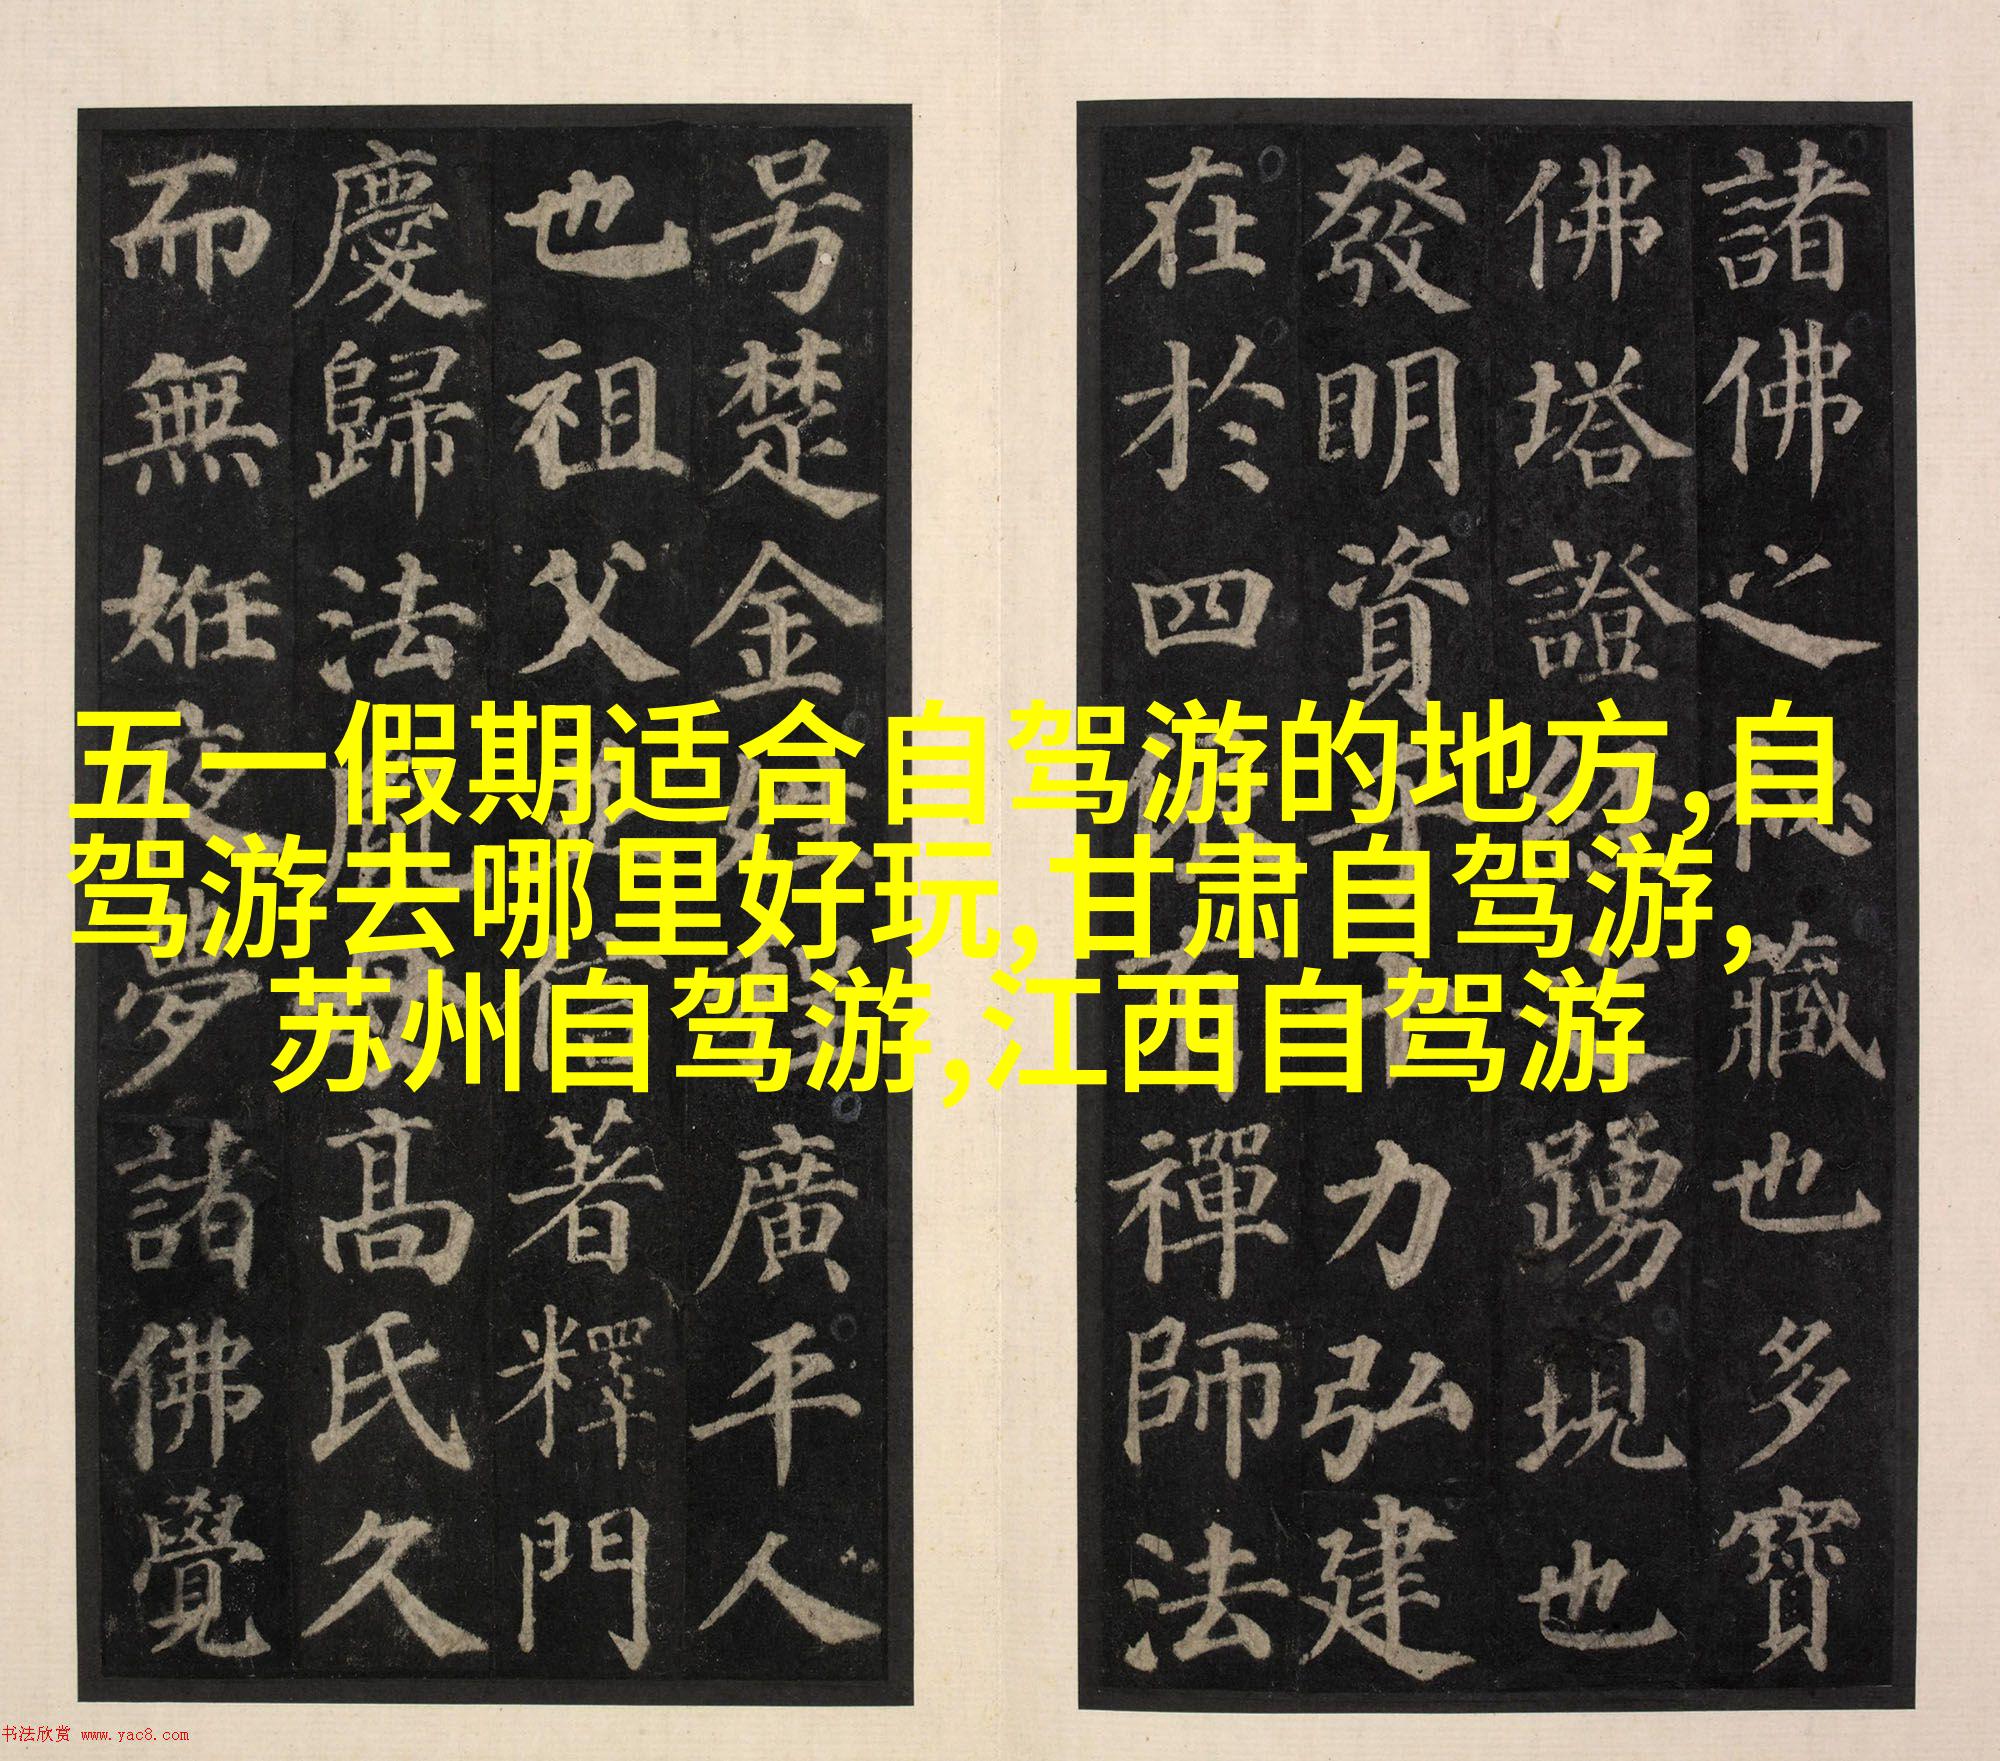 諸佛之秘藏也多寶
佛塔證經之踴現也
發明資乎十力弘建
在於四依有禪師法
号楚金姓程廣平人
也祖父並信著釋門
慶歸法胤母高氏久
而無姙夜夢諸佛覺
五一假期适合自驾游的地方,自
驾游去哪里好玩,甘肃自驾游,
苏州自驾游,江西自驾游
书法欣赏 www.yac8.com